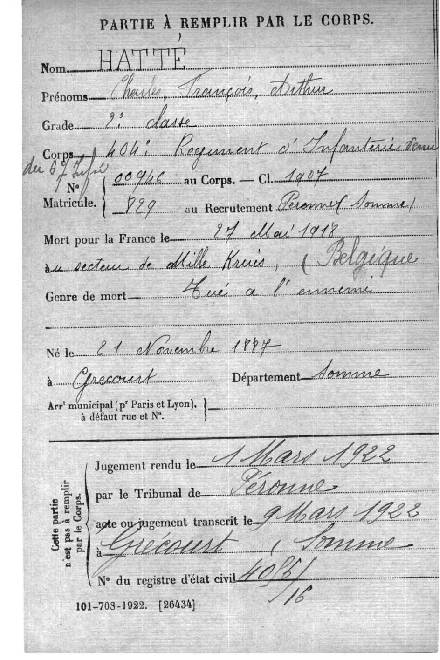 PARTIE À REMPLIR PAR LE CORPS.
Nom HATTÉ
Prénoms Charles François, Arthur
Grade 2e classe
Corps 404e Régiment d'Infanterie
No 00940 au Corps. — Cl. 1907
Matricule. 829 au Recrutement Péronne (Somme)
Mort pour la France le 27 Mai 1918
au secteur de Mille Kruis, (Belgique
Genre de mort Tué a l'ennemi
Né le 21 Novembre 1887
à Grecourt Département Somme
Arrt municipal (pr Paris et Lyon),
à défaut rue et No.
Cette partie
n'est pas à remplir
par le Corps.
Jugement rendu le 1 Mars 1922
par le Tribunal de Péronne
acte ou jugement transcrit le 9 Mars 1922
à Grecourt (Somme
No du registre d'état civil
101-708-1922. [26434]